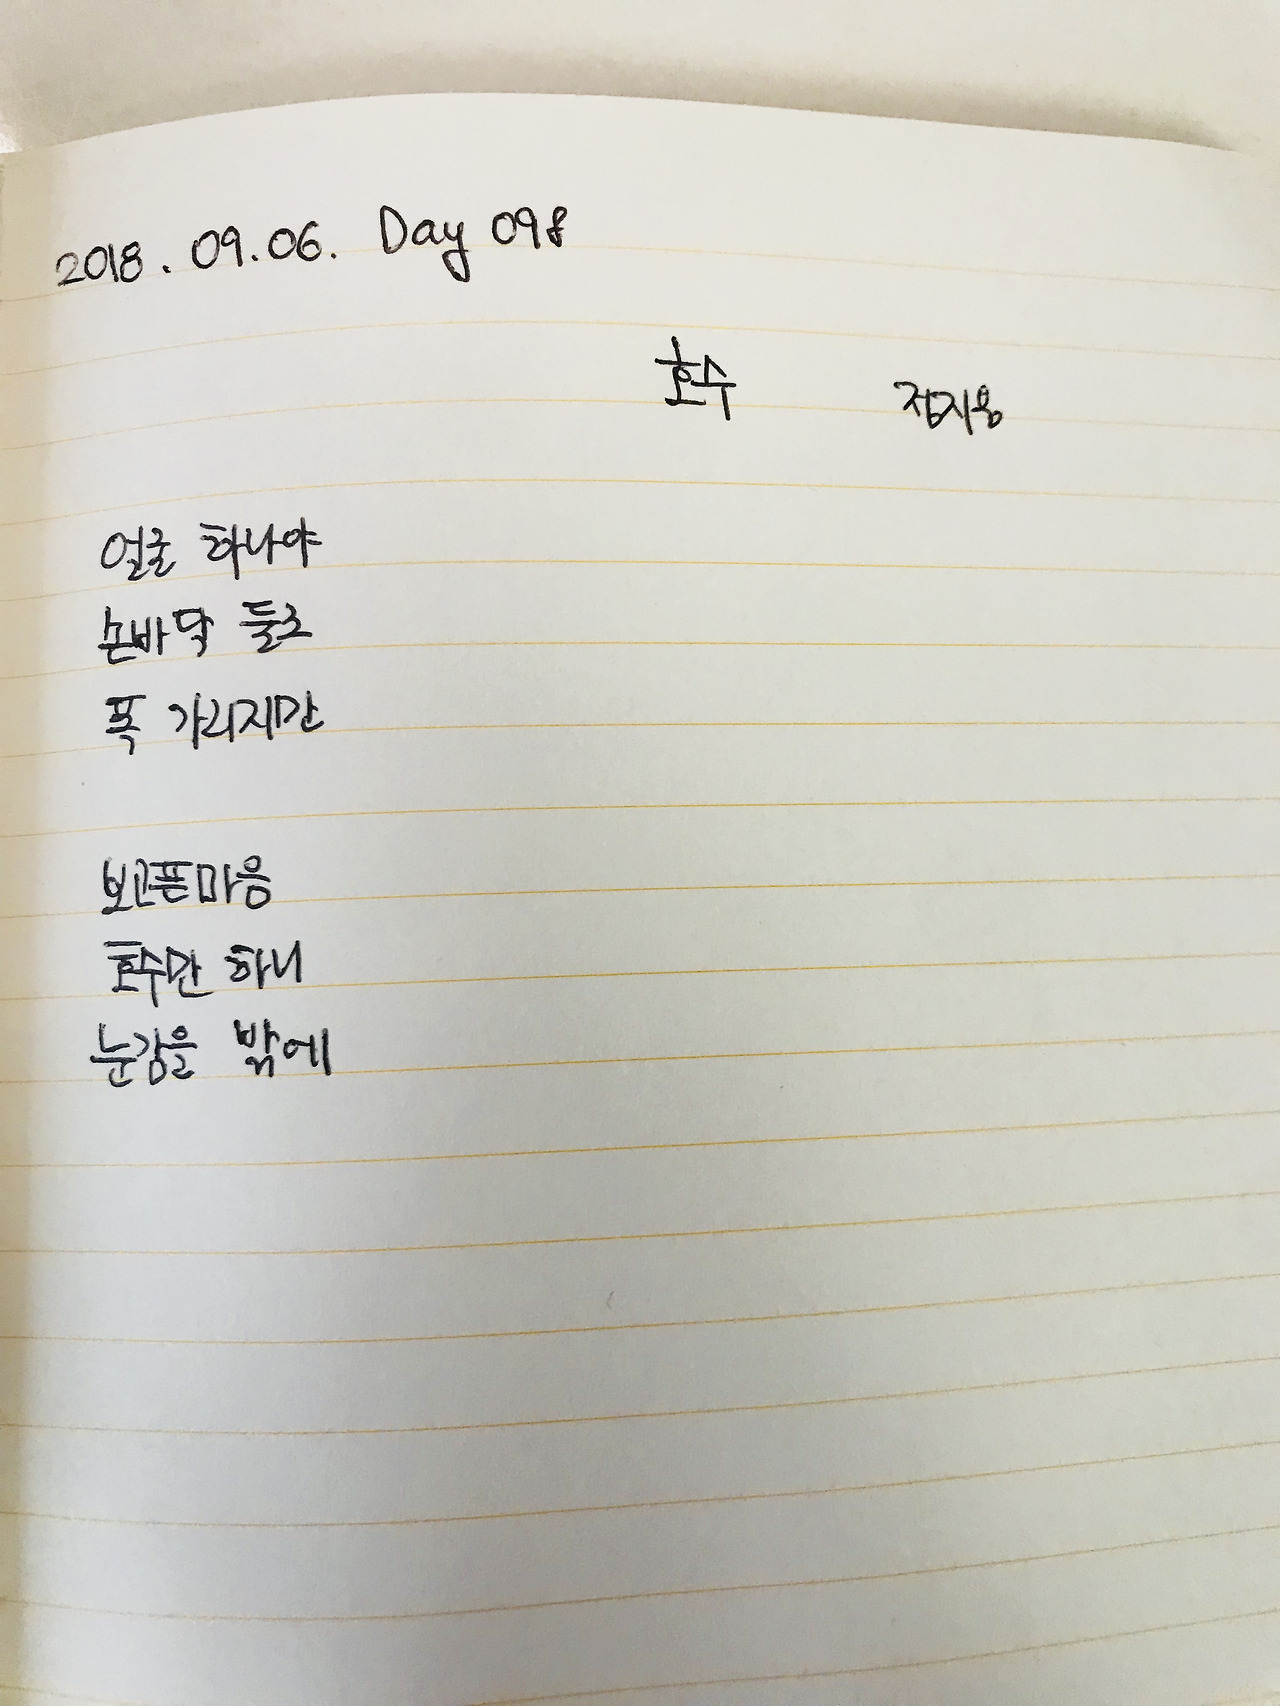 2018. 09. 06. Day 098
호수 정지용
얼굴 하나야
손바닥 둘로
폭 가리지만
보고픈마음
호수만 하니
눈감을 밖에